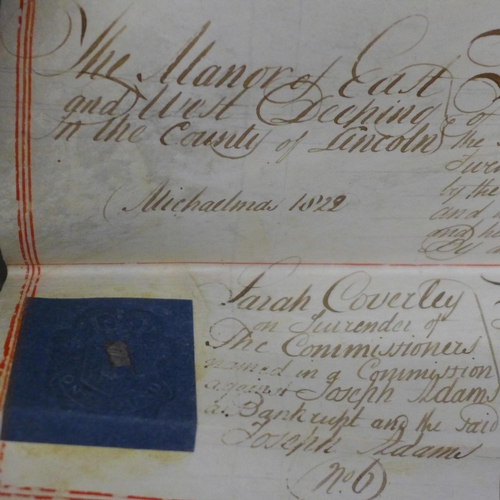 The Manor of East
and West Deeping
in the County of Lincoln
Michaelmas 1822
of
the
by the
and
and
By
Sarah Coverley
on Surrender of
The Commissioners
named in a Commission
against Joseph Adams
a Bankrupt and the said
Joseph Adams
No 6